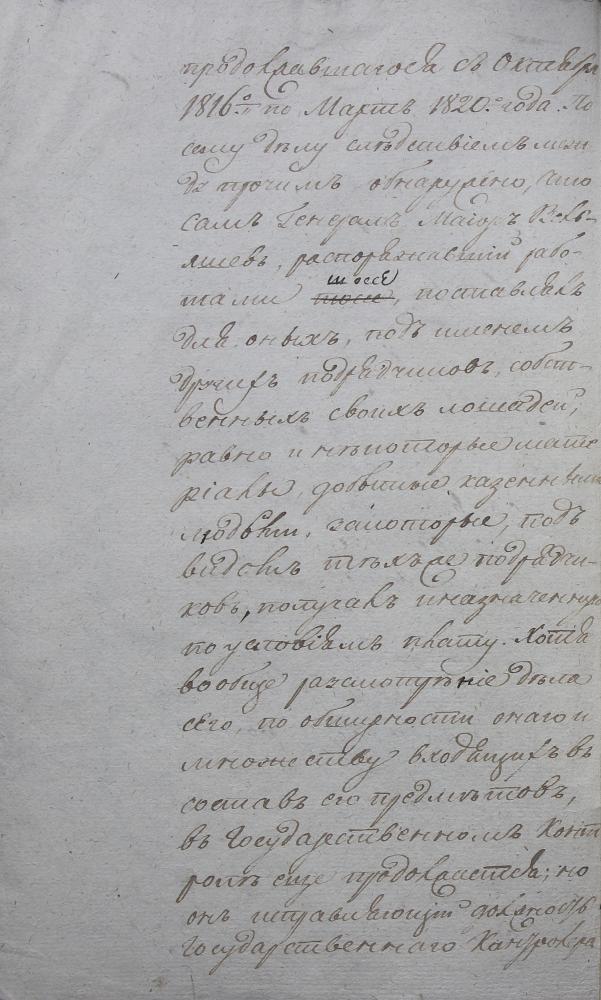 продолжавшагося съ Октября
1816го по Мартъ 1820.го года. По
сему дѣлу слѣдствіемъ меж
ду прочимъ обнаружено, что
самъ Генералъ Маіоръ
, распоряжавшій рабо-
тами шоссе, поставлялъ
для оныхъ, подъ именемъ
другихъ подрядчиковъ, собст-
венныхъ своихъ лошадей,
равно и нѣкоторые мате
ріалы, добытые казенными
людьми, за которые, подъ
видомъ тѣхъ же подрядчи-
ковъ, получалъ и назначенную
по условіямъ плату. Хотя
вообще разсмотрѣніе дѣла
сего, по обширности онаго и
множеству входящихъ въ
составъ его предмѣтовъ,
въ Государственномъ Конт
ролѣ еще продолжается; но
онъ исправляющій должность
Государственнаго Контролера